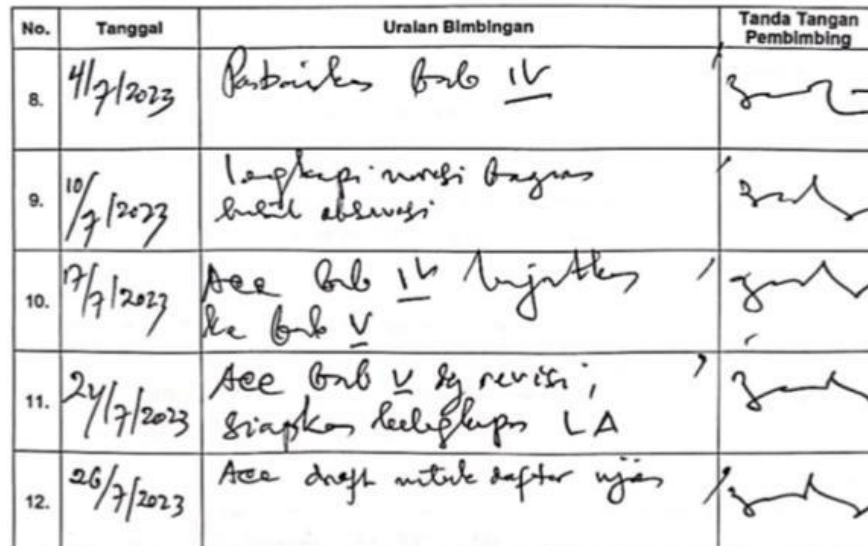 No. Tanggal Uraian Bimbingan Tanda Tangan
Pembimbing
8. 4/7/2023 Perbaikan bab IV
9. 10/7/2023 Lengkapi narasi bagian
hasil observasi
10. 17/7/2023 Acc bab IV lanjutkan
ke bab V
11. 24/7/2023 Acc bab V dg revisi,
siapkan kelengkapan LA
12. 26/7/2023 Acc draft untuk daftar ujian